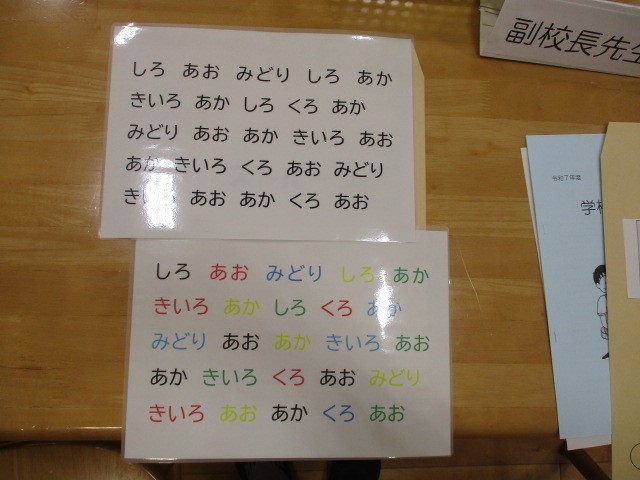 しろ あお みどり しろ あか
きいろ あか しろ くろ あか
みどり あお あか きいろ あお
あか きいろ くろ あお みどり
きいろ あお あか くろ あお
しろ あお みどり しろ あか
きいろ あか しろ くろ あか
みどり あお あか きいろ あお
あか きいろ くろ あお みどり
きいろ あお あか くろ あお
副校長先生
令和7年度
学校